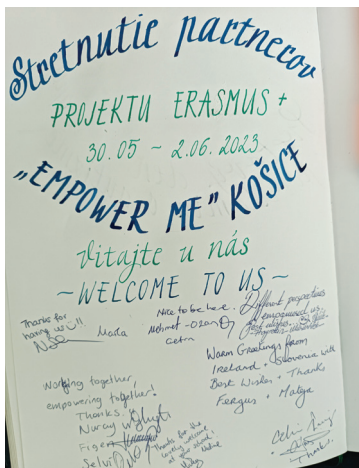 Stretnutie partnerov
PROJEKTU ERASMUS +
30.05 - 2.06.2023
„EMPOWER ME" KOŠICE
vitajte u nás
~WELCOME TO US~
Thanks for
having us!!
Maria
Nice to be here.
Mehmet - Ozan
Cetin
Different perspectives
empowered us.
Best wishes
Warm Greetings from
Ireland + Slovenia with
Best Wishes + Thanks
Fergus + Mateja
Working together,
empowering together!
Thanks.
Nuray
Figen
Selvi
Thanks for the
lovely welcome
at your school!
Thanks!